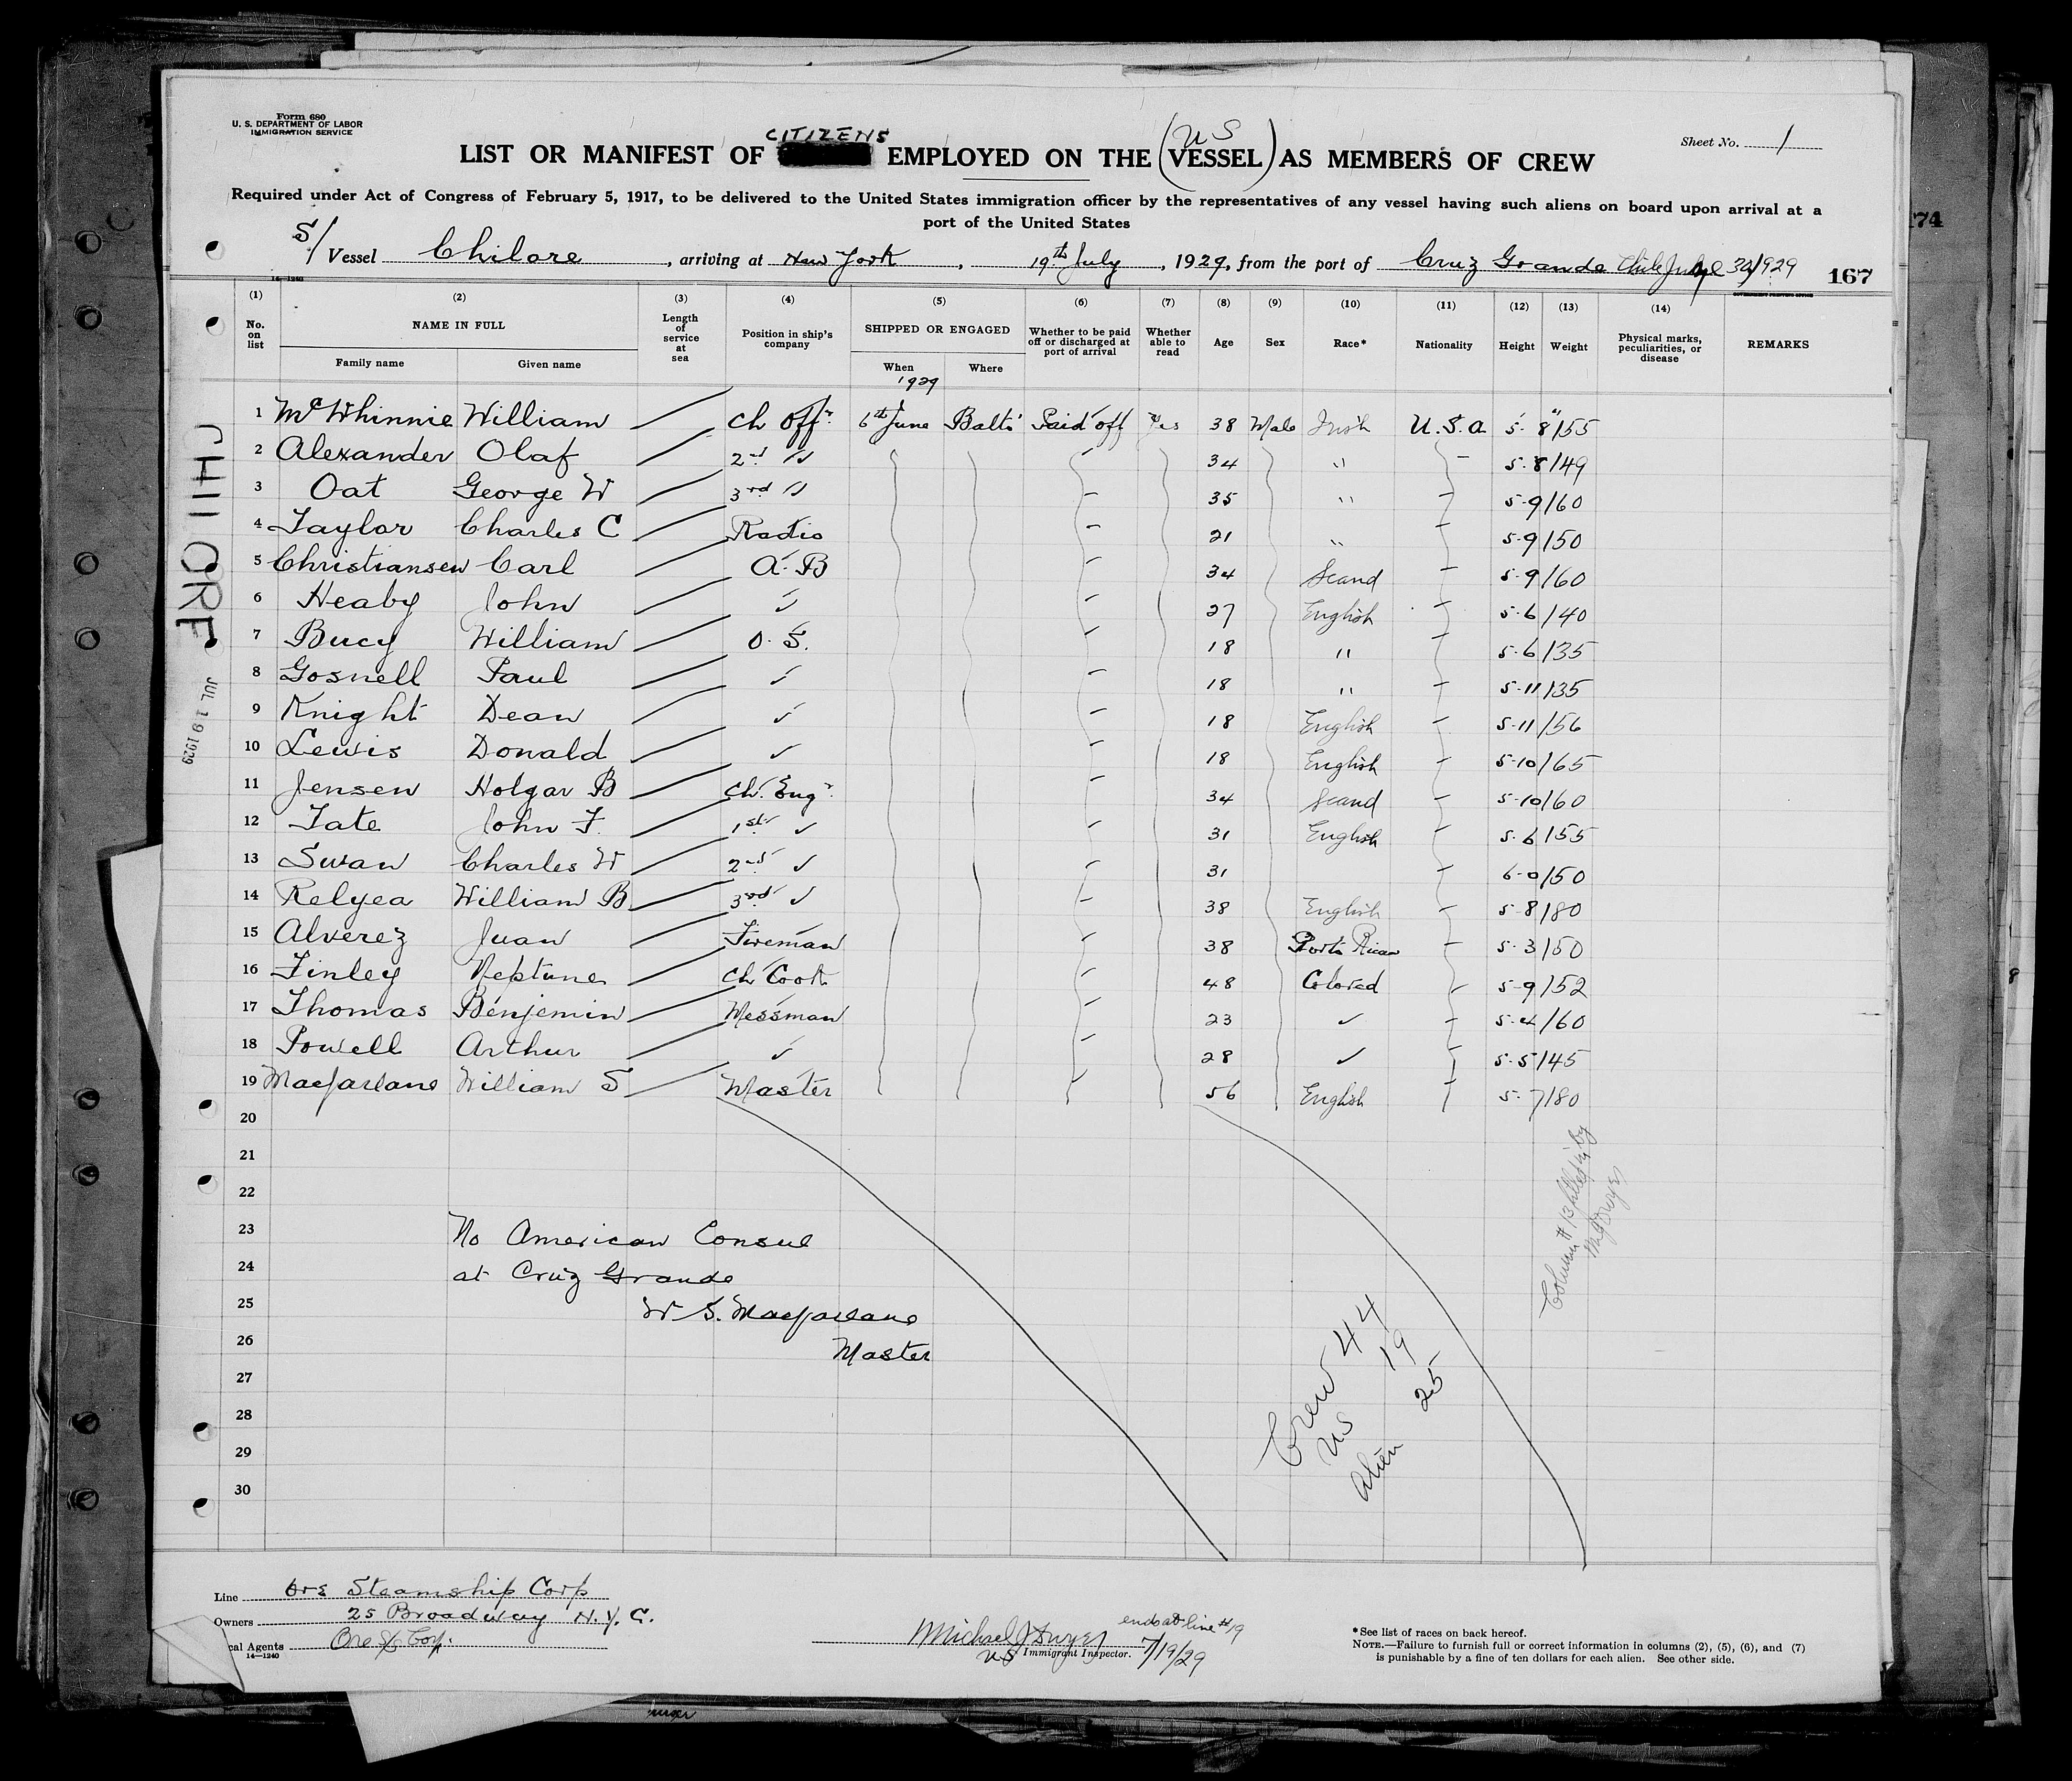 Form 680
U. S. DEPARTMENT OF LABOR
IMMIGRATION SERVICE
Sheet No. 1
CITIZENS
US
LIST OR MANIFEST OF EMPLOYED ON THE (VESSEL) AS MEMBERS OF CREW
Required under Act of Congress of February 5, 1917, to be delivered to the United States immigration officer by the representatives of any vessel having such aliens on board upon arrival at a
port of the United States
S/ Vessel Chilore, arriving at New York, 19th July, 1929, from the port of Cruz Grande Chile 1929
167
14—1240
GOVERNMENT PRINTING OFFICE
(1) (2) (3) (4) (5) (6) (7) (8) (9) (10) (11) (12) (13) (14)
No. on list
NAME IN FULL
Family name
Given name
Length of service at sea
Position in ship's company
SHIPPED OR ENGAGED
When
Where
Whether to be paid off or discharged at port of arrival
Whether able to read
Age
Sex
Race*
Nationality
Height
Weight
Physical marks, peculiarities, or disease
REMARKS
1929
1 McWhinnie William Ch Offr 6th June Balto Paid off Yes 38 Male Irish U.S.a 5' 8" 155
2 Alexander Olaf 2nd " 34 " 5-8 149
3 Oat George W 3rd " 35 " 5-9 160
4 Taylor Charles C Radio 21 " 5-9 150
5 Christiansen Carl A. B 34 Scand 5-9 160
6 Heaby John ✓ 27 English 5-6 140
7 Bucy William O. S. 18 " 5-6 135
8 Gosnell Paul ✓ 18 " 5-11 135
9 Knight Dean ✓ 18 English 5-11 156
10 Lewis Donald ✓ 18 English 5-10 165
11 Jensen Holgar B Ch. Engr 34 Scand 5-10 160
12 Tate John F. 1st ✓ 31 English 5-6 155
13 Swan Charles W 2nd ✓ 31 6-0 150
14 Relyea William B. 3rd ✓ 38 English 5-8 180
15 Alverez Juan Fireman 38 Porto Rican 5-3 150
16 Finley Neptune Ch Cook 48 Colored 5-9 152
17 Thomas Benjemin Messman 23 ✓ 5-4 160
18 Powell Arthur ✓ 28 ✓ 5-5 145
19 Macfarlane William S Master 56 English 5-7 180
20
21
22
23 No American Consul
24 at Cruz Grande
25 W S. Macfarlane
26 Master
27
28
29
30
Column #13 filled in by
M J Dwyer
Crew 44
US 19
Alien 25
CHILORE
JUL 19 1929
Line Ore Steamship Corp
Owners 25 Broadway N.Y. C.
cal Agents Ore S/S Corp.
14—1240
Michael J Dwyer
ends at line #19
US Immigrant Inspector. 7/19/29
*See list of races on back hereof.
NOTE.—Failure to furnish full or correct information in columns (2), (5), (6), and (7)
is punishable by a fine of ten dollars for each alien. See other side.
74